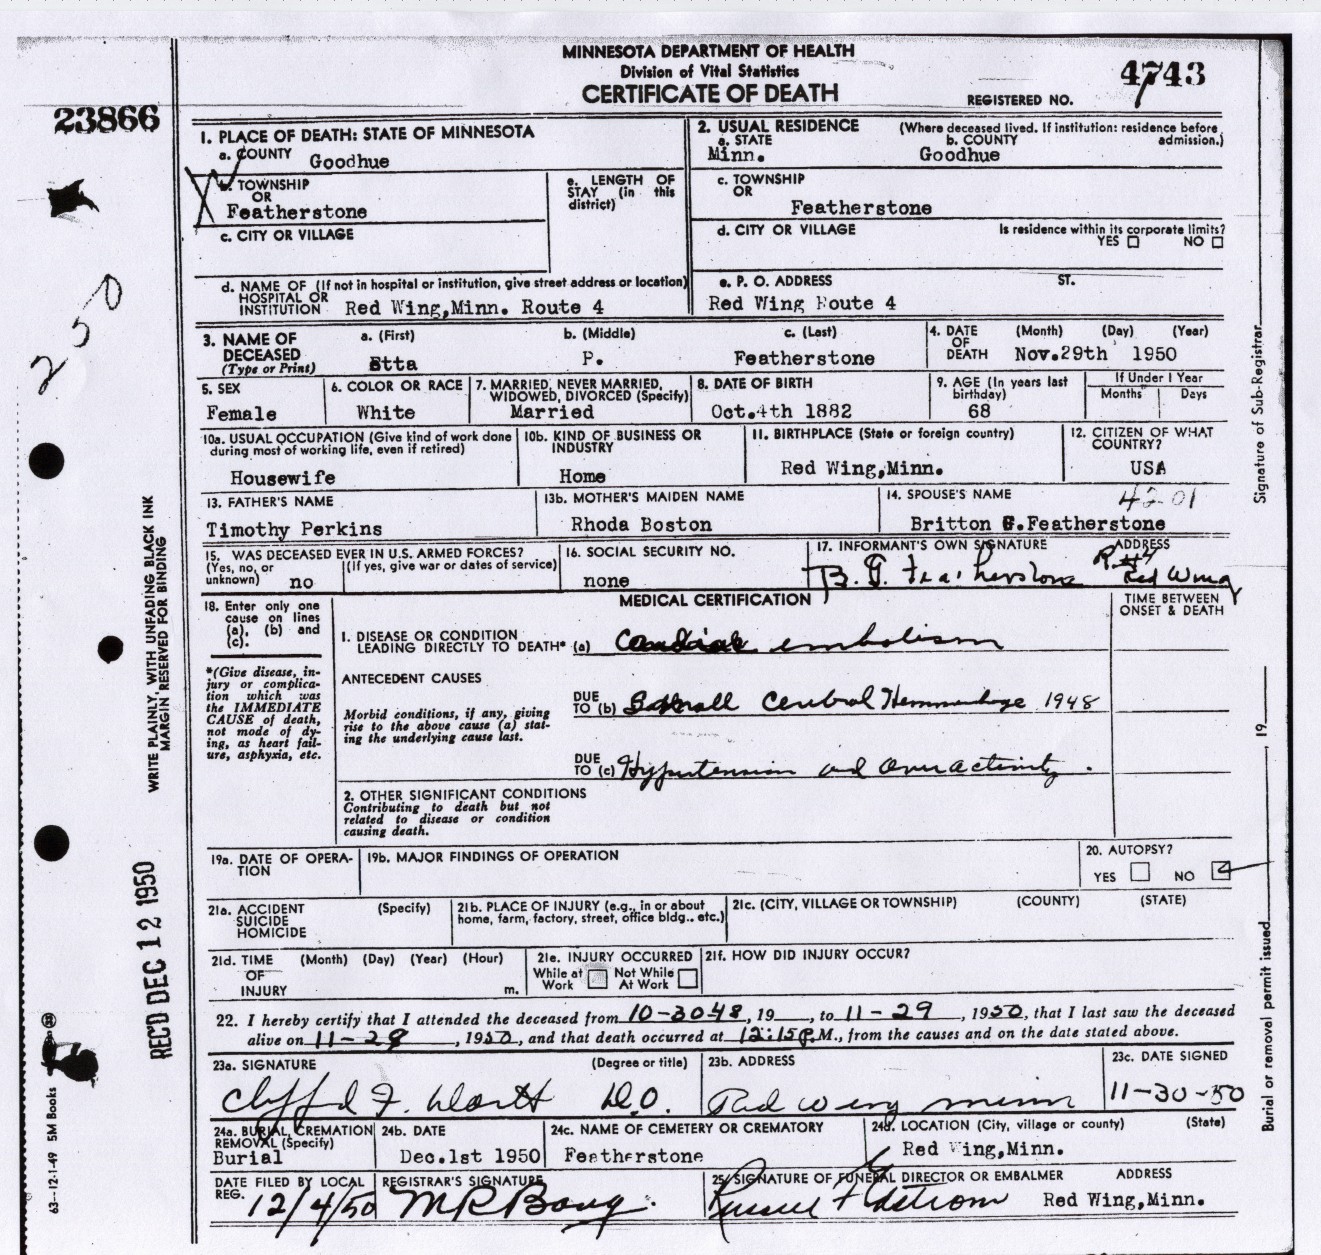 MINNESOTA DEPARTMENT OF HEALTH
Division of Vital Statistics
CERTIFICATE OF DEATH
REGISTERED NO. 4743
23866
250
1. PLACE OF DEATH: STATE OF MINNESOTA
a. COUNTY Goodhue
b. TOWNSHIP OR Featherstone
e. LENGTH OF STAY (in this district)
c. CITY OR VILLAGE
d. NAME OF HOSPITAL OR INSTITUTION (If not in hospital or institution, give street address or location) Red Wing,Minn. Route 4
2. USUAL RESIDENCE (Where deceased lived. If institution: residence before admission.)
a. STATE Minn. b. COUNTY Goodhue
c. TOWNSHIP OR Featherstone
d. CITY OR VILLAGE Is residence within its corporate limits? YES NO
e. P. O. ADDRESS ST. Red Wing Route 4
3. NAME OF DECEASED (Type or Print) a. (First) Etta b. (Middle) P. c. (Last) Featherstone
4. DATE OF DEATH (Month) (Day) (Year) Nov.29th 1950
5. SEX Female
6. COLOR OR RACE White
7. MARRIED, NEVER MARRIED, WIDOWED, DIVORCED (Specify) Married
8. DATE OF BIRTH Oct.4th 1882
9. AGE (In years last birthday) 68 If Under 1 Year Months Days
10a. USUAL OCCUPATION (Give kind of work done during most of working life, even if retired) Housewife
10b. KIND OF BUSINESS OR INDUSTRY Home
11. BIRTHPLACE (State or foreign country) Red Wing,Minn.
12. CITIZEN OF WHAT COUNTRY? USA
4201
13. FATHER'S NAME Timothy Perkins
13b. MOTHER'S MAIDEN NAME Rhoda Boston
14. SPOUSE'S NAME Britton G.Featherstone
15. WAS DECEASED EVER IN U.S. ARMED FORCES? (Yes, no, or unknown) no (If yes, give war or dates of service)
16. SOCIAL SECURITY NO. none
17. INFORMANT'S OWN SIGNATURE B. G. Featherstone ADDRESS R.#4 Red Wing
18. Enter only one cause on lines (a), (b) and (c).
*(Give disease, injury or complication which was the IMMEDIATE CAUSE of death, not mode of dying, as heart failure, asphyxia, etc.
MEDICAL CERTIFICATION
TIME BETWEEN ONSET & DEATH
1. DISEASE OR CONDITION LEADING DIRECTLY TO DEATH* (a) Cardiac embolism
ANTECEDENT CAUSES
Morbid conditions, if any, giving rise to the above cause (a) stating the underlying cause last.
DUE TO (b) Small Cerebral Hemmorhage 1948
DUE TO (c) Hypertension and overactivity.
2. OTHER SIGNIFICANT CONDITIONS
Contributing to death but not related to disease or condition causing death.
19a. DATE OF OPERATION
19b. MAJOR FINDINGS OF OPERATION
20. AUTOPSY? YES NO
21a. ACCIDENT SUICIDE HOMICIDE (Specify)
21b. PLACE OF INJURY (e.g., in or about home, farm, factory, street, office bldg., etc.)
21c. (CITY, VILLAGE OR TOWNSHIP) (COUNTY) (STATE)
21d. TIME OF INJURY (Month) (Day) (Year) (Hour) m.
21e. INJURY OCCURRED While at Work Not While At Work
21f. HOW DID INJURY OCCUR?
22. I hereby certify that I attended the deceased from 10-30 48, 19__, to 11-29, 1950, that I last saw the deceased
alive on 11-29, 1950, and that death occurred at 12:15 P.M., from the causes and on the date stated above.
23a. SIGNATURE (Degree or title) Clifford F. D.O.
23b. ADDRESS Red Wing Minn
23c. DATE SIGNED 11-30-50
24a. BURIAL, CREMATION REMOVAL (Specify) Burial
24b. DATE Dec.1st 1950
24c. NAME OF CEMETERY OR CREMATORY Featherstone
24d. LOCATION (City, village or county) (State) Red Wing,Minn.
DATE FILED BY LOCAL REG. 12/4/50
REGISTRAR'S SIGNATURE M R
25. SIGNATURE OF FUNERAL DIRECTOR OR EMBALMER ADDRESS Red Wing,Minn.
WRITE PLAINLY, WITH UNFADING BLACK INK
MARGIN RESERVED FOR BINDING
REC'D DEC 12 1950
63--12-1-49 5M Books
Signature of Sub-Registrar
Burial or removal permit issued , 19